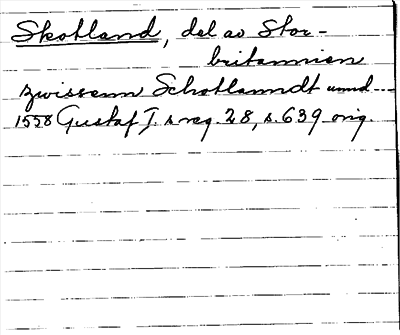 Skottland, del av Stor-
britannien
zwissenn Schottlanndt unnd---
1558 Gustaf I. s reg. 28, s. 639 orig.